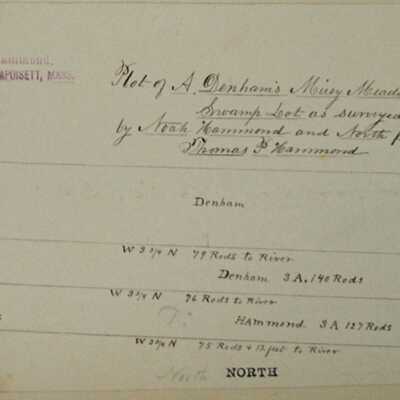 APOISETT, MASS.
Plot of A. Denham's Mirey Meado
Swamp Lot as surveyed
by Noah Hammond and North
Thomas P Hammond
Denham
W 3 3/4 N 79 Rods to River
Denham 3 A, 140 Rods
W 3 3/4 N 76 Rods to River
Hammond 3 A 127 Rods
W 3 3/4 N 75 Rods & 13 feet to River
North NORTH